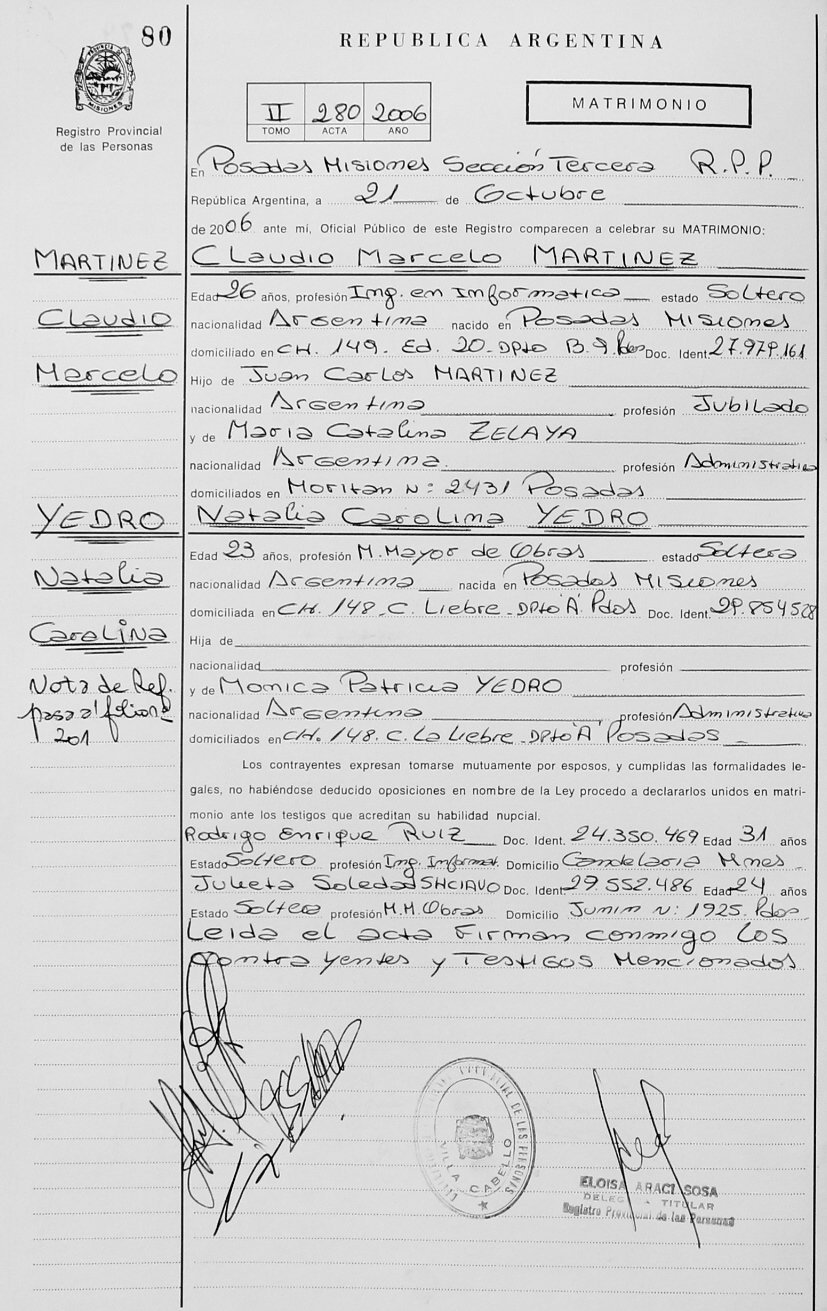 80
REPUBLICA ARGENTINA
PROVINCIA DE MISIONES
Registro Provincial
de las Personas
II 280 2006
TOMO ACTA AÑO
MATRIMONIO
En Posadas Misiones Sección Tercera R.P.P.
República Argentina, a 21 de Octubre
de 2006 ante mi, Oficial Público de este Registro comparecen a celebrar su MATRIMONIO:
MARTINEZ
Claudio Marcelo MARTINEZ
Edad 26 años, profesión Ing. en Informatica estado Soltero
Claudio
nacionalidad Argentina nacido en Posadas Misiones
domiciliado en CH. 149. Ed. 20 - Dpto B. 9. Pdos Doc. Ident. 27.979.161
Marcelo
Hijo de Juan Carlos MARTINEZ
nacionalidad Argentina profesión Jubilado
y de Maria Catalina ZELAYA
nacionalidad Argentina. profesión Administrativa
domiciliados en N: 2431 Posadas
YEDRO
Natalia Carolina YEDRO
Edad 23 años, profesión M. Mayor de Obras estado Soltera
Natalia
nacionalidad Argentina nacida en Posadas Misiones
domiciliada en CH. 148 - C. Liebre - Dpto "A" Pdos Doc. Ident. 29.854528
Carolina
Hija de
nacionalidad profesión
Nota de Ref.
y de Monica Patricia YEDRO
pasa al folio nº
nacionalidad Argentina, profesión Administrativa
201
domiciliados en CH. 148. C. La Liebre - Dpto "A" Posadas
Los contrayentes expresan tomarse mutuamente por esposos, y cumplidas las formalidades le-
gales, no habiéndose deducido oposiciones en nombre de la Ley procedo a declararlos unidos en matri-
monio ante los testigos que acreditan su habilidad nupcial.
Rodrigo Enrique RUIZ Doc. Ident. 24.350.469 Edad 31 años
Estado Soltero profesión Ing. Informat. Domicilio Candelaria Mnes
Julieta Soledad SHCIAVO Doc. Ident 29.552.486 Edad 24 años
Estado Soltera profesión M.M. Obras Domicilio Junin N: 1925. Pdos
Leida el acta Firman conmigo los
Contrayentes y Testigos Mencionados
PROVINCIAL DE LAS PERSONAS
VILLA CABELLO
ELOISA ARACI SOSA
DELEG TITULAR
Registro Provincial de las Personas